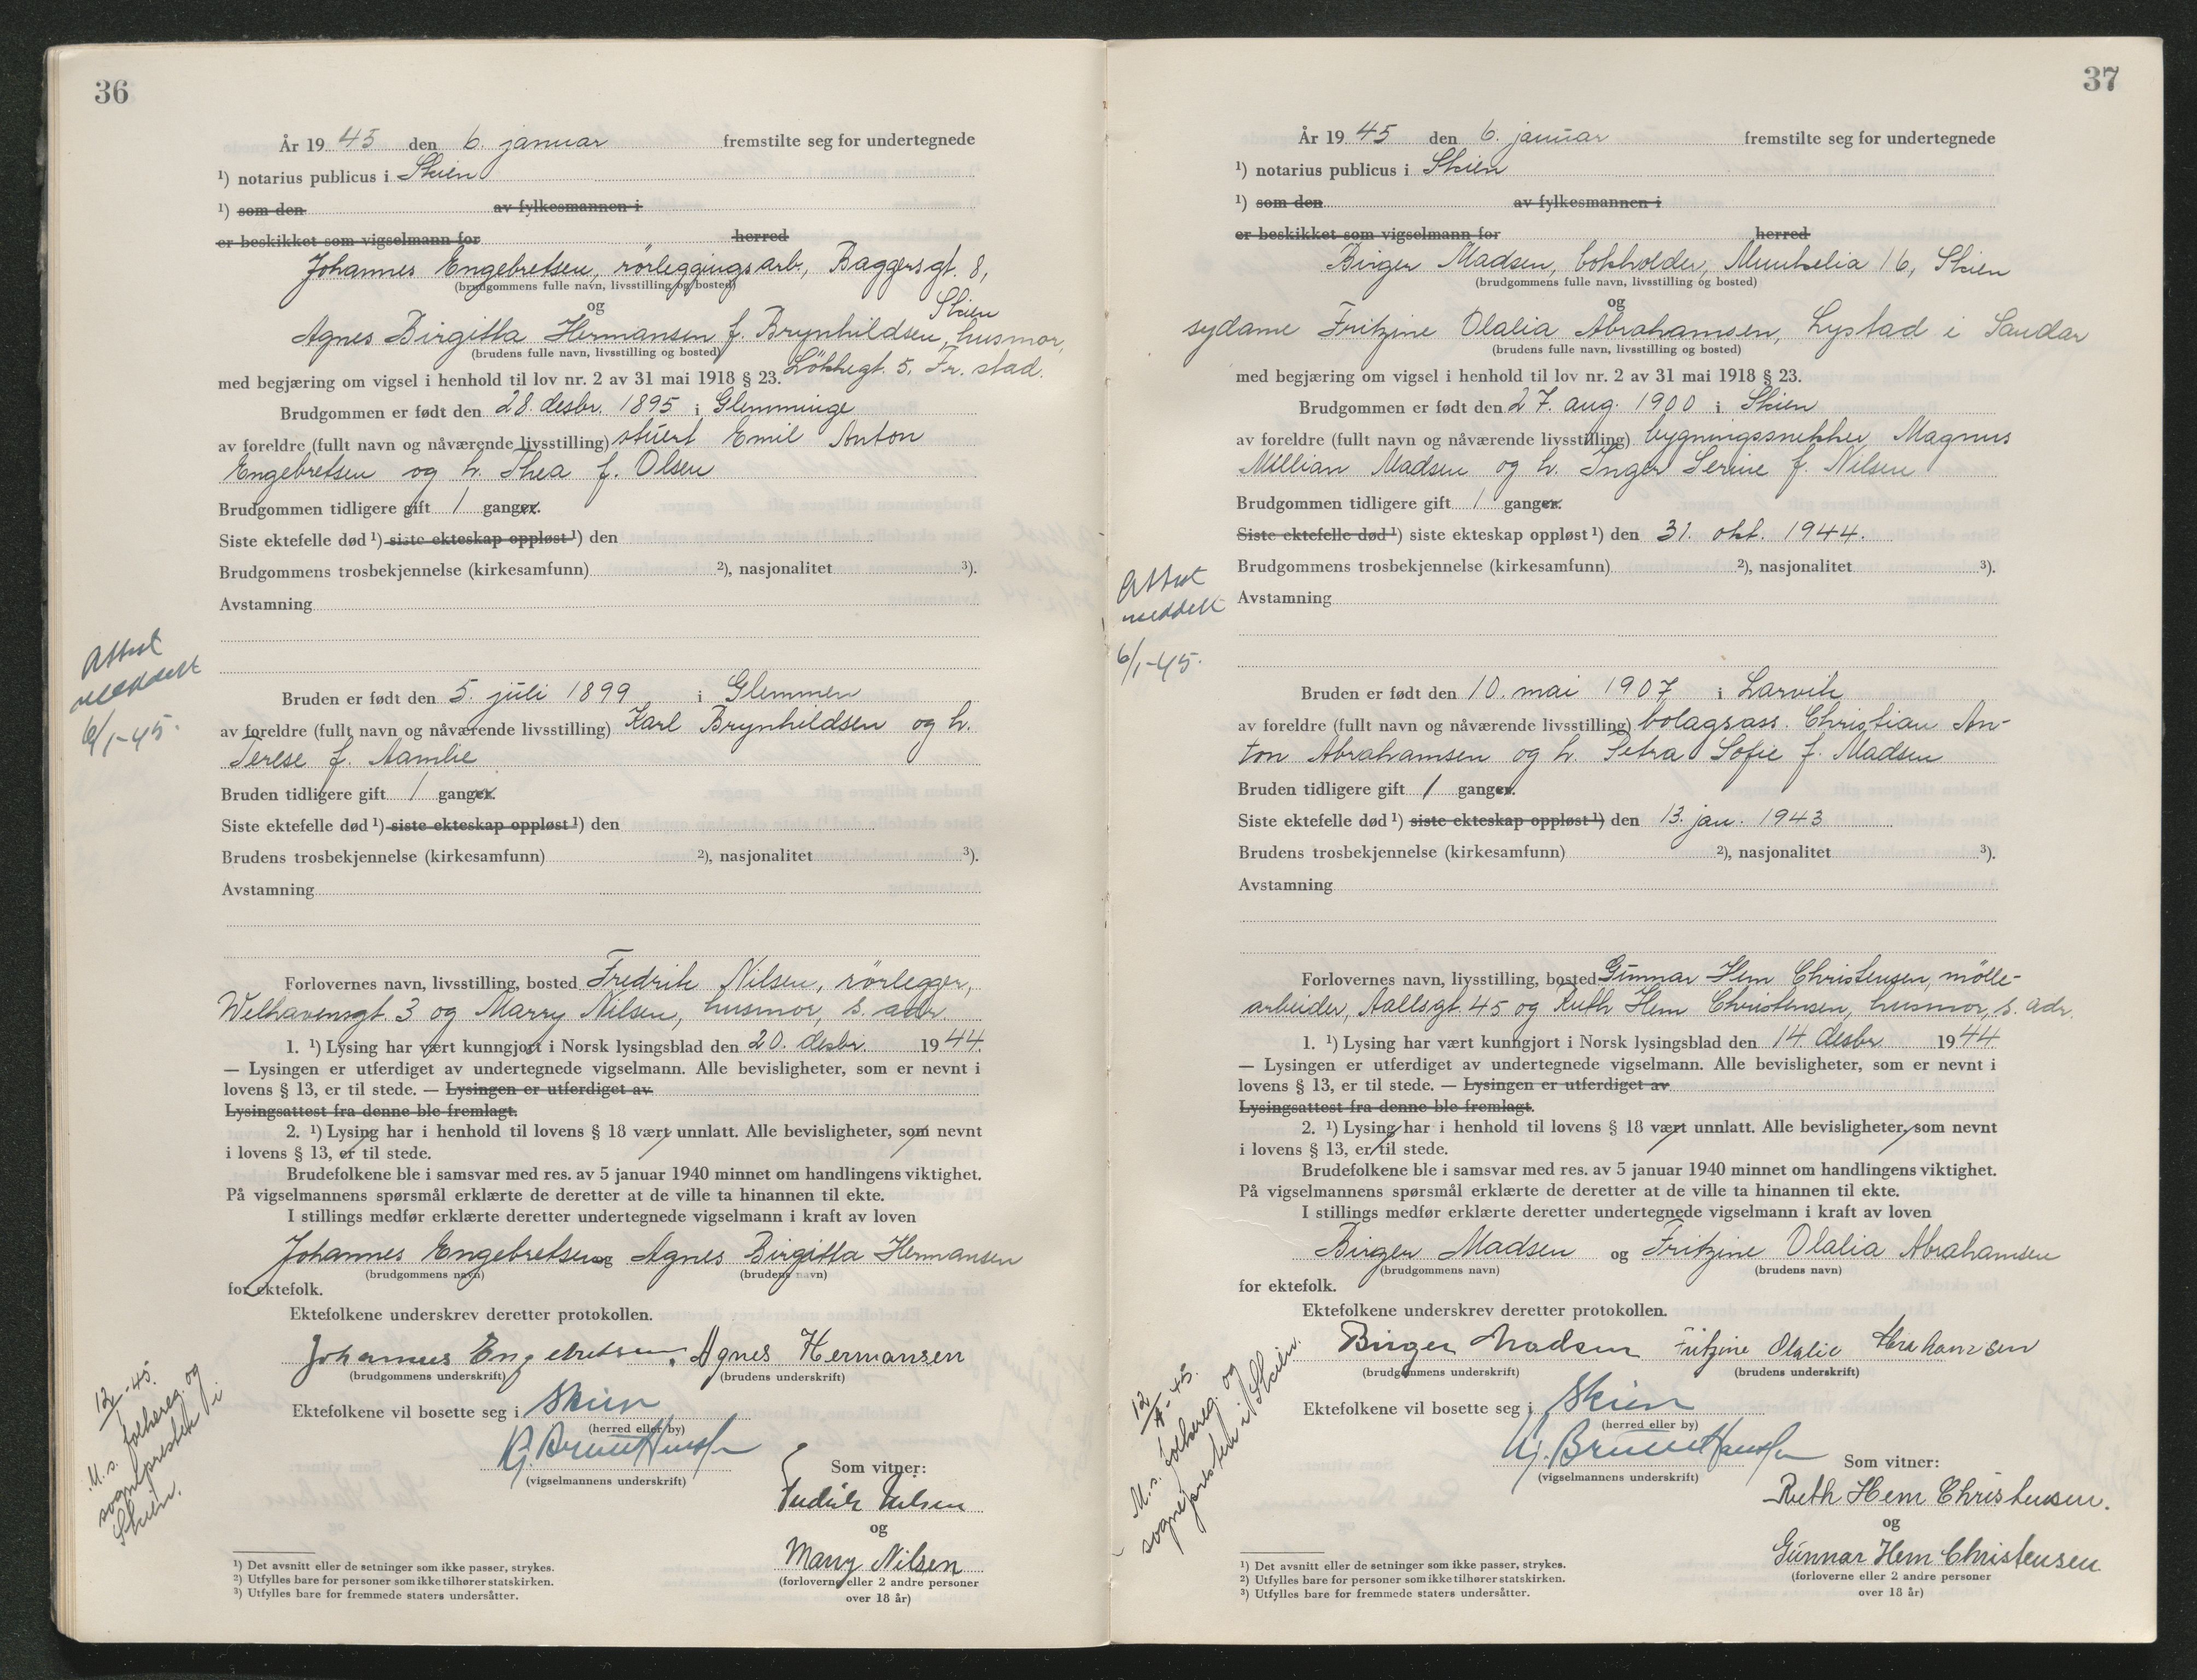 36
År 19 45 den 6. januar fremstilte seg for undertegnede
¹) notarius publicus i Skien
¹) som den av fylkesmannen i
er beskikket som vigselmann for herred
Johannes Engebretsen, rörleggingsarb., Baggersgt. 8,
(brudgommens fulle navn, livsstilling og bosted)
Skien
og
Agnes Birgitta Hermansen f. Brynhildsen, husmor,
(brudens fulle navn, livsstilling og bosted)
Lökkegt. 5, Fr. stad.
med begjæring om vigsel i henhold til lov nr. 2 av 31 mai 1918 § 23.
Brudgommen er født den 28. desbr. 1895 i Glemminge
av foreldre (fullt navn og nåværende livsstilling) stuert Emil Anton
Engebretsen og h. Thea f. Olsen
Brudgommen tidligere gift 1 ganger.
Siste ektefelle død ¹) siste ekteskap oppløst ¹) den
Brudgommens trosbekjennelse (kirkesamfunn) ²), nasjonalitet ³).
Avstamning
Attest
meddelt
6/1-45.
Bruden er født den 5. juli 1899 i Glemmen
av foreldre (fullt navn og nåværende livsstilling) Karl Brynhildsen og h.
Terese f. Aamlie
Bruden tidligere gift 1 ganger.
Siste ektefelle død ¹) siste ekteskap oppløst ¹) den
Brudens trosbekjennelse (kirkesamfunn) ²), nasjonalitet ³).
Avstamning
Forlovernes navn, livsstilling, bosted Fredrik Nilsen, rörlegger,
Welhavensgt. 3 og Marry Nilsen, husmor, s. adr.
1. ¹) Lysing har vært kunngjort i Norsk lysingsblad den 20. desbr. 19 44.
— Lysingen er utferdiget av undertegnede vigselmann. Alle bevisligheter, som er nevnt i
lovens § 13, er til stede. — Lysingen er utferdiget av
Lysingsattest fra denne ble fremlagt.
2. ¹) Lysing har i henhold til lovens § 18 vært unnlatt. Alle bevisligheter, som nevnt
i lovens § 13, er til stede.
Brudefolkene ble i samsvar med res. av 5 januar 1940 minnet om handlingens viktighet.
På vigselmannens spørsmål erklærte de deretter at de ville ta hinannen til ekte.
I stillings medfør erklærte deretter undertegnede vigselmann i kraft av loven
Johannes Engebretsen og Agnes Birgitta Hermansen
(brudgommens navn) (brudens navn)
for ektefolk.
Ektefolkene underskrev deretter protokollen.
Johannes Engebretsen. Agnes Hermansen
(brudgommens underskrift) (brudens underskrift)
Ektefolkene vil bosette seg i Skien
(herred eller by)
(vigselmannens underskrift)
12/1-45.
M.s. folkereg. og
sognepresten i
Skien.
Som vitner:
Fredrik Nilsen
og
Marry Nilsen
(forloverne eller 2 andre personer
over 18 år)
¹) Det avsnitt eller de setninger som ikke passer, strykes.
²) Utfylles bare for personer som ikke tilhører statskirken.
³) Utfylles bare for fremmede staters undersåtter.
37
År 19 45 den 6. januar fremstilte seg for undertegnede
¹) notarius publicus i Skien
¹) som den av fylkesmannen i
er beskikket som vigselmann for herred
Birger Madsen, bokholder, Munkelia 16, Skien
(brudgommens fulle navn, livsstilling og bosted)
og
sydame Fritzine Olalia Abrahamsen, Lystad i Sandar
(brudens fulle navn, livsstilling og bosted)
med begjæring om vigsel i henhold til lov nr. 2 av 31 mai 1918 § 23.
Brudgommen er født den 27. aug. 1900 i Skien
av foreldre (fullt navn og nåværende livsstilling) bygningssnekker Magnus
Millian Madsen og h. Inger Serine f. Nilsen
Brudgommen tidligere gift 1 ganger.
Siste ektefelle død ¹) siste ekteskap oppløst ¹) den 31. okt. 1944.
Brudgommens trosbekjennelse (kirkesamfunn) ²), nasjonalitet ³).
Avstamning
Attest
meddelt
6/1-45.
Bruden er født den 10. mai 1907 i Larvik
av foreldre (fullt navn og nåværende livsstilling) bolagsass. Christian An-
ton Abrahamsen og h. Petra Sofie f. Madsen
Bruden tidligere gift 1 ganger.
Siste ektefelle død ¹) siste ekteskap oppløst ¹) den 13. jan. 1943
Brudens trosbekjennelse (kirkesamfunn) ²), nasjonalitet ³).
Avstamning
Forlovernes navn, livsstilling, bosted Gunnar Hem Christensen, mölle-
arbeider, Aallsgt. 45 og Ruth Hem Christensen, husmor, s. adr.
1. ¹) Lysing har vært kunngjort i Norsk lysingsblad den 14 desbr. 19 44
— Lysingen er utferdiget av undertegnede vigselmann. Alle bevisligheter, som er nevnt i
lovens § 13, er til stede. — Lysingen er utferdiget av
Lysingsattest fra denne ble fremlagt.
2. ¹) Lysing har i henhold til lovens § 18 vært unnlatt. Alle bevisligheter, som nevnt
i lovens § 13, er til stede.
Brudefolkene ble i samsvar med res. av 5 januar 1940 minnet om handlingens viktighet.
På vigselmannens spørsmål erklærte de deretter at de ville ta hinannen til ekte.
I stillings medfør erklærte deretter undertegnede vigselmann i kraft av loven
Birger Madsen og Fritzine Olalia Abrahamsen
(brudgommens navn) (brudens navn)
for ektefolk.
Ektefolkene underskrev deretter protokollen.
Birger Madsen Fritzine Olalie Abrahamsen
(brudgommens underskrift) (brudens underskrift)
Ektefolkene vil bosette seg i Skien
(herred eller by)
(vigselmannens underskrift)
12/1-45.
M.s. folkereg. og
sognepresten i Skien.
Som vitner:
Ruth Hem Christensen.
og
Gunnar Hem Christensen
(forloverne eller 2 andre personer
over 18 år)
¹) Det avsnitt eller de setninger som ikke passer, strykes.
²) Utfylles bare for personer som ikke tilhører statskirken.
³) Utfylles bare for fremmede staters undersåtter.